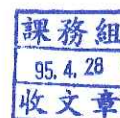 課務組
95.4.28
收文章